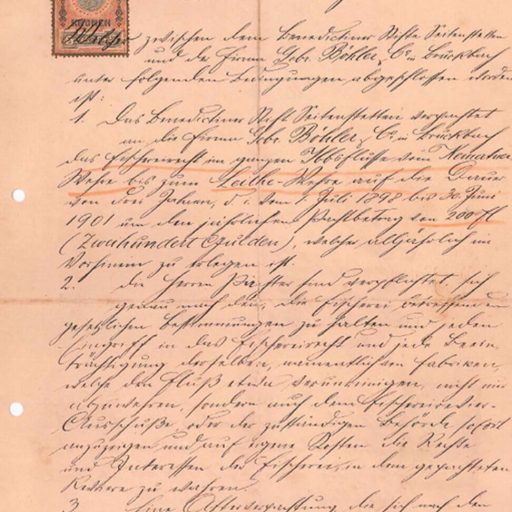 KRONEN
Welcher zwischen dem Benedictiner Stifte Seitenstetten
und der Firma Gebr. Böhler & Co in Bruckbach
unter folgenden Bedingungen abgeschlossen worden
ist:
1. Das Benedictiner Stift Seitenstetten verpachtet
an die Firma Gebr. Böhler & Co in Bruckbach
das Fischereirecht im ganzen Ybbsflusse vom
Wehre bis zum Leithe-Wehre auf die Dauer
von drei Jahren, d. i. vom 1. Juli 1898 bis 30. Juni
1901 um den jährlichen Pachtbetrag von 200 fl
(Zweihundert Gulden), welcher alljährlich im
Vorhinein zu erlegen ist.
2. die Herren Pächter sind verpflichtet, sich
genau nach den, die Fischerei betreffenden
gesetzlichen Bestimmungen zu halten und jeden
Eingriff in das Fischereirecht und jede Beein-
trächtigung derselben, namentlich von Fabriken,
welche den Fluß etwa verunreinigen, nicht nur
abzuwehren, sondern auch dem Fischereirevier-
Ausschuße oder der zuständigen Behörde sofort
anzuzeigen und auf eigene Kosten die Rechte
und Interessen der Fischerei in dem gepachteten
Reviere zu wahren.
3. Eine Afterverpachtung die sich nach dem